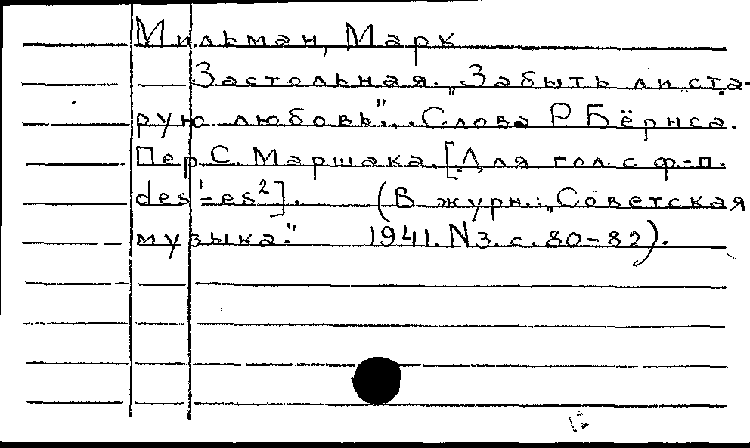 Мильман, Марк
Застольная. „Забыть ли ста-
рую любовь". Слова Р Бёрнса.
Пер С. Маршака. [Для гол. с ф-п.
des¹-es²]. (В журн.: „Советская
музыка." 1941. N3. с. 80-82).